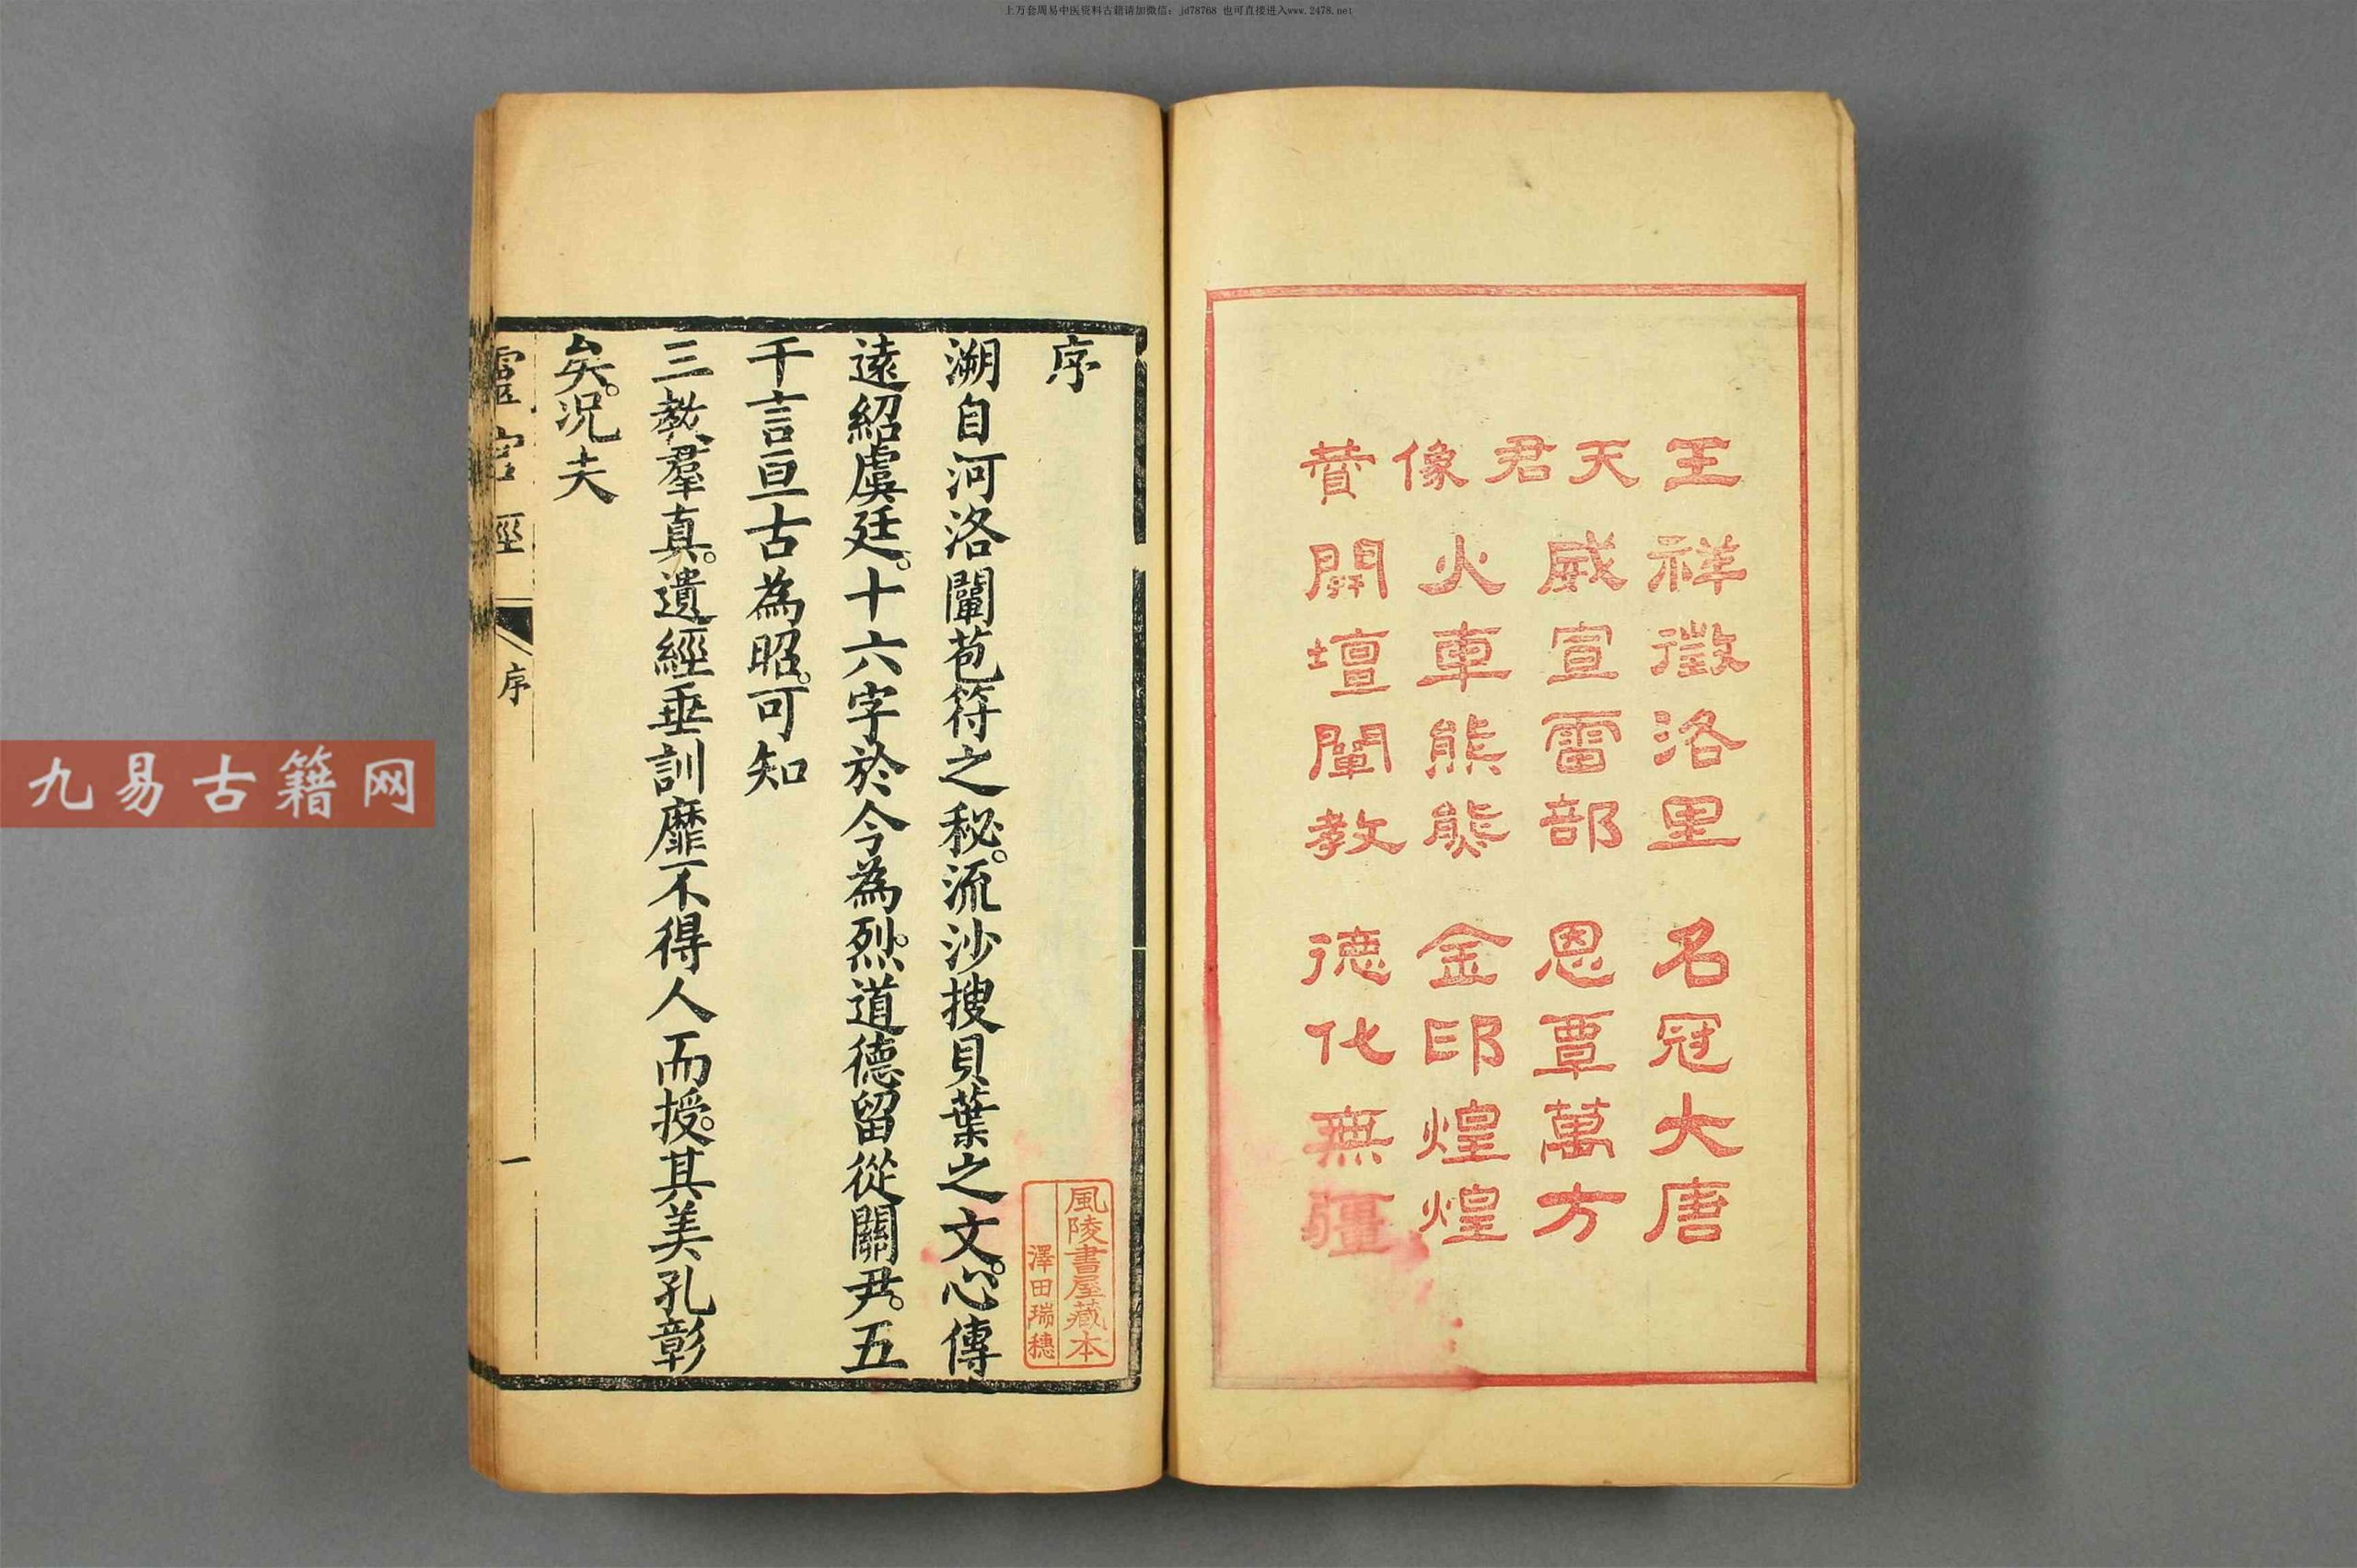 上万套周易中医资料古籍请加微信：jd78768 也可直接进入www.2478.net
王天君像贊
祥徵洛里 名冠大唐
威宣雷部 恩覃萬方
火車熊熊 金印煌煌
開壇闡教 德化無疆
序
溯自河洛闡苞符之秘。流沙搜貝葉之文。心傳
遠紹虞廷。十六字於今為烈。道德留從關尹。五
千言亘古為昭。可知
三教羣真。遺經垂訓靡不得人而授。其美孔彰
矣。况夫
靈官經 序 一
風陵書屋藏本
澤田瑞穗
九易古籍网